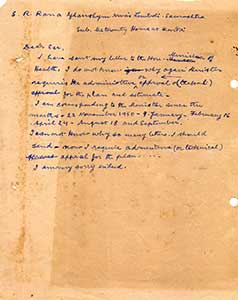 S. R. Rana
Sub. Maternity House at
Dear Sir,
I have sent my letter to the Hon. Minister of
Health, I do not know why again Minister
requires the administrative approval or (technical)
approval for the plan and estimate -
I am corresponding to the Minister since the
months - 21 November 1950 - 9 January - February 16
April 24 - August 18 and September.
I can not know why so many letters I should
send - now I require administrative (or technical)
approval for the plan ....
I am very sorry